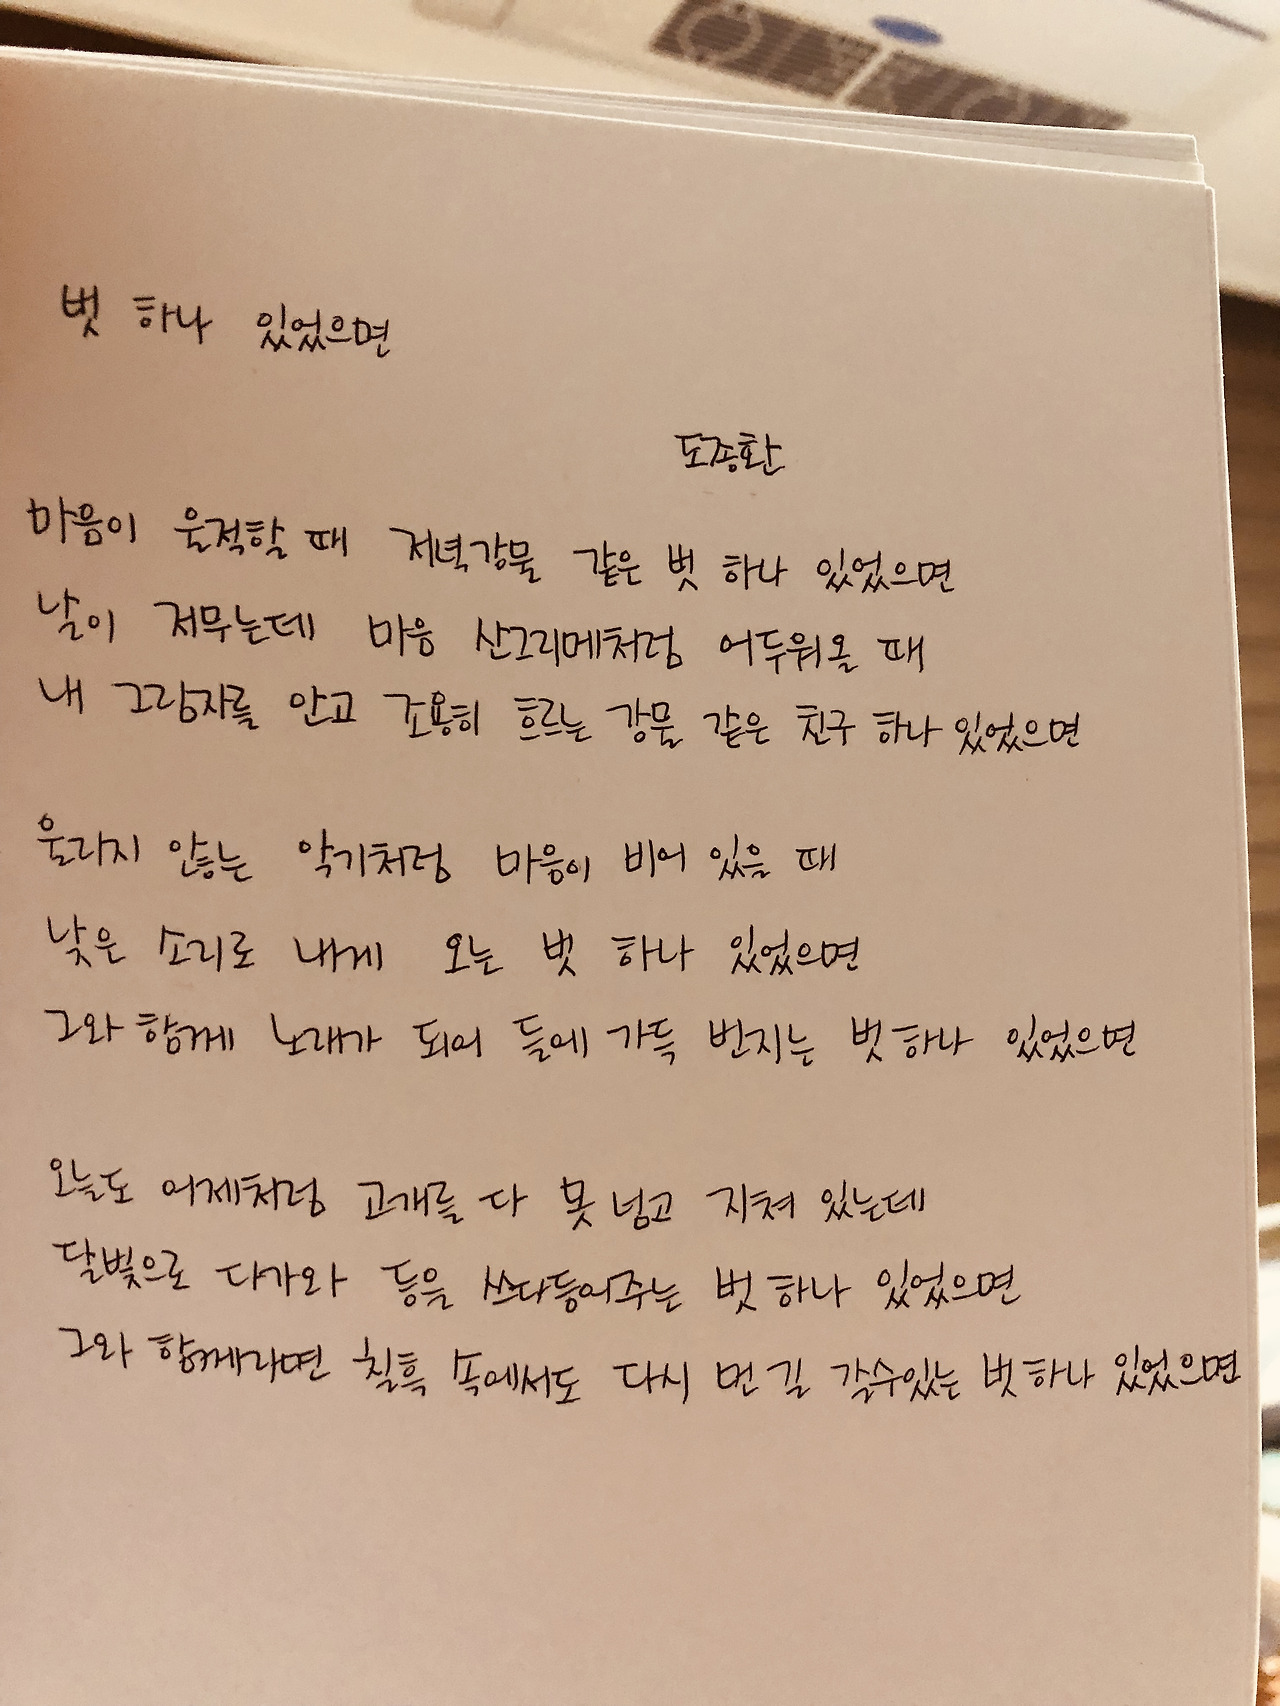 벗 하나 있었으면
도종환
마음이 울적할 때 저녁강물 같은 벗 하나 있었으면
날이 저무는데 마음 산그리메처럼 어두워올 때
내 그림자를 안고 조용히 흐르는 강물 같은 친구 하나 있었으면
울리지 않는 악기처럼 마음이 비어 있을 때
낮은 소리로 내게 오는 벗 하나 있었으면
그와 함께 노래가 되어 들에 가득 번지는 벗 하나 있었으면
오늘도 어제처럼 고개를 다 못 넘고 지쳐 있는데
달빛으로 다가와 등을 쓰다듬어주는 벗 하나 있었으면
그와 함께라면 칠흑 속에서도 다시 먼 길 갈수있는 벗 하나 있었으면